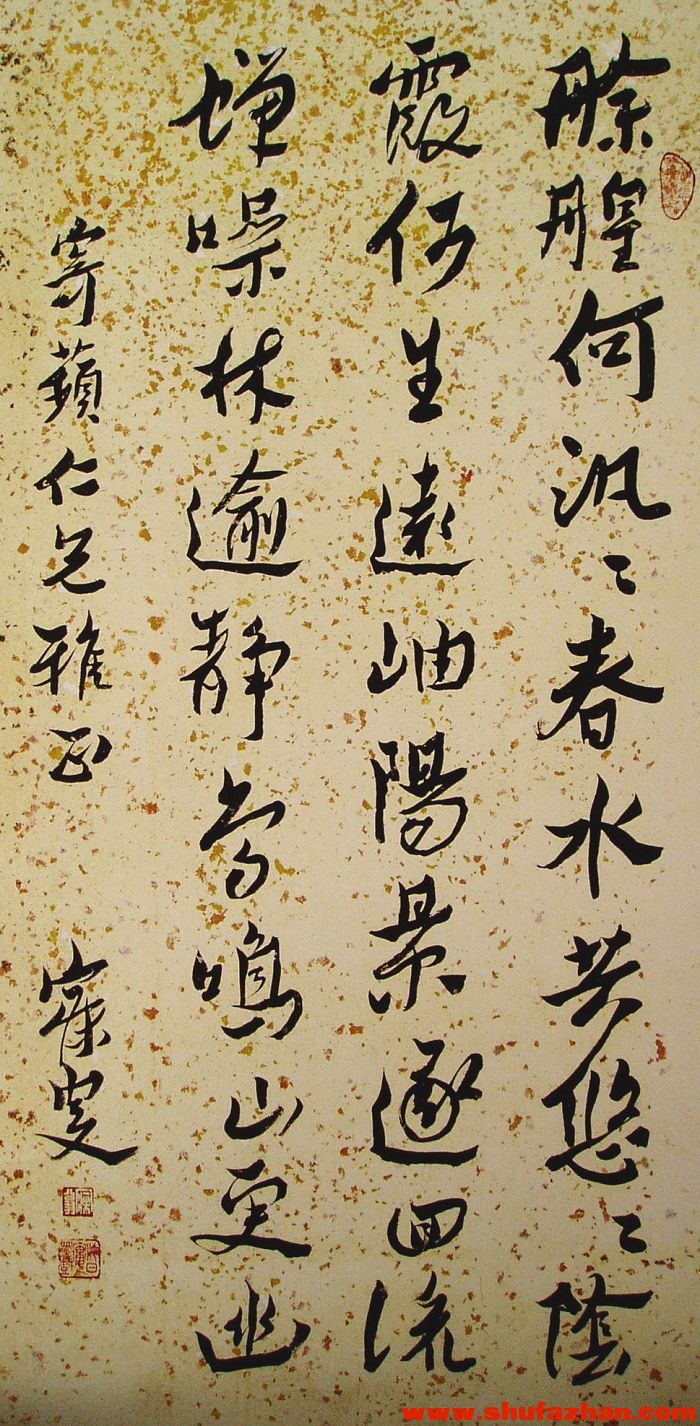 艅艎何汎〻春水共悠〻陰
霞何生遠岫陽景逐回流
蟬噪林逾靜鳥鳴山更幽
寄蘋仁兄雅正 寐叟
www.shufazhan.com